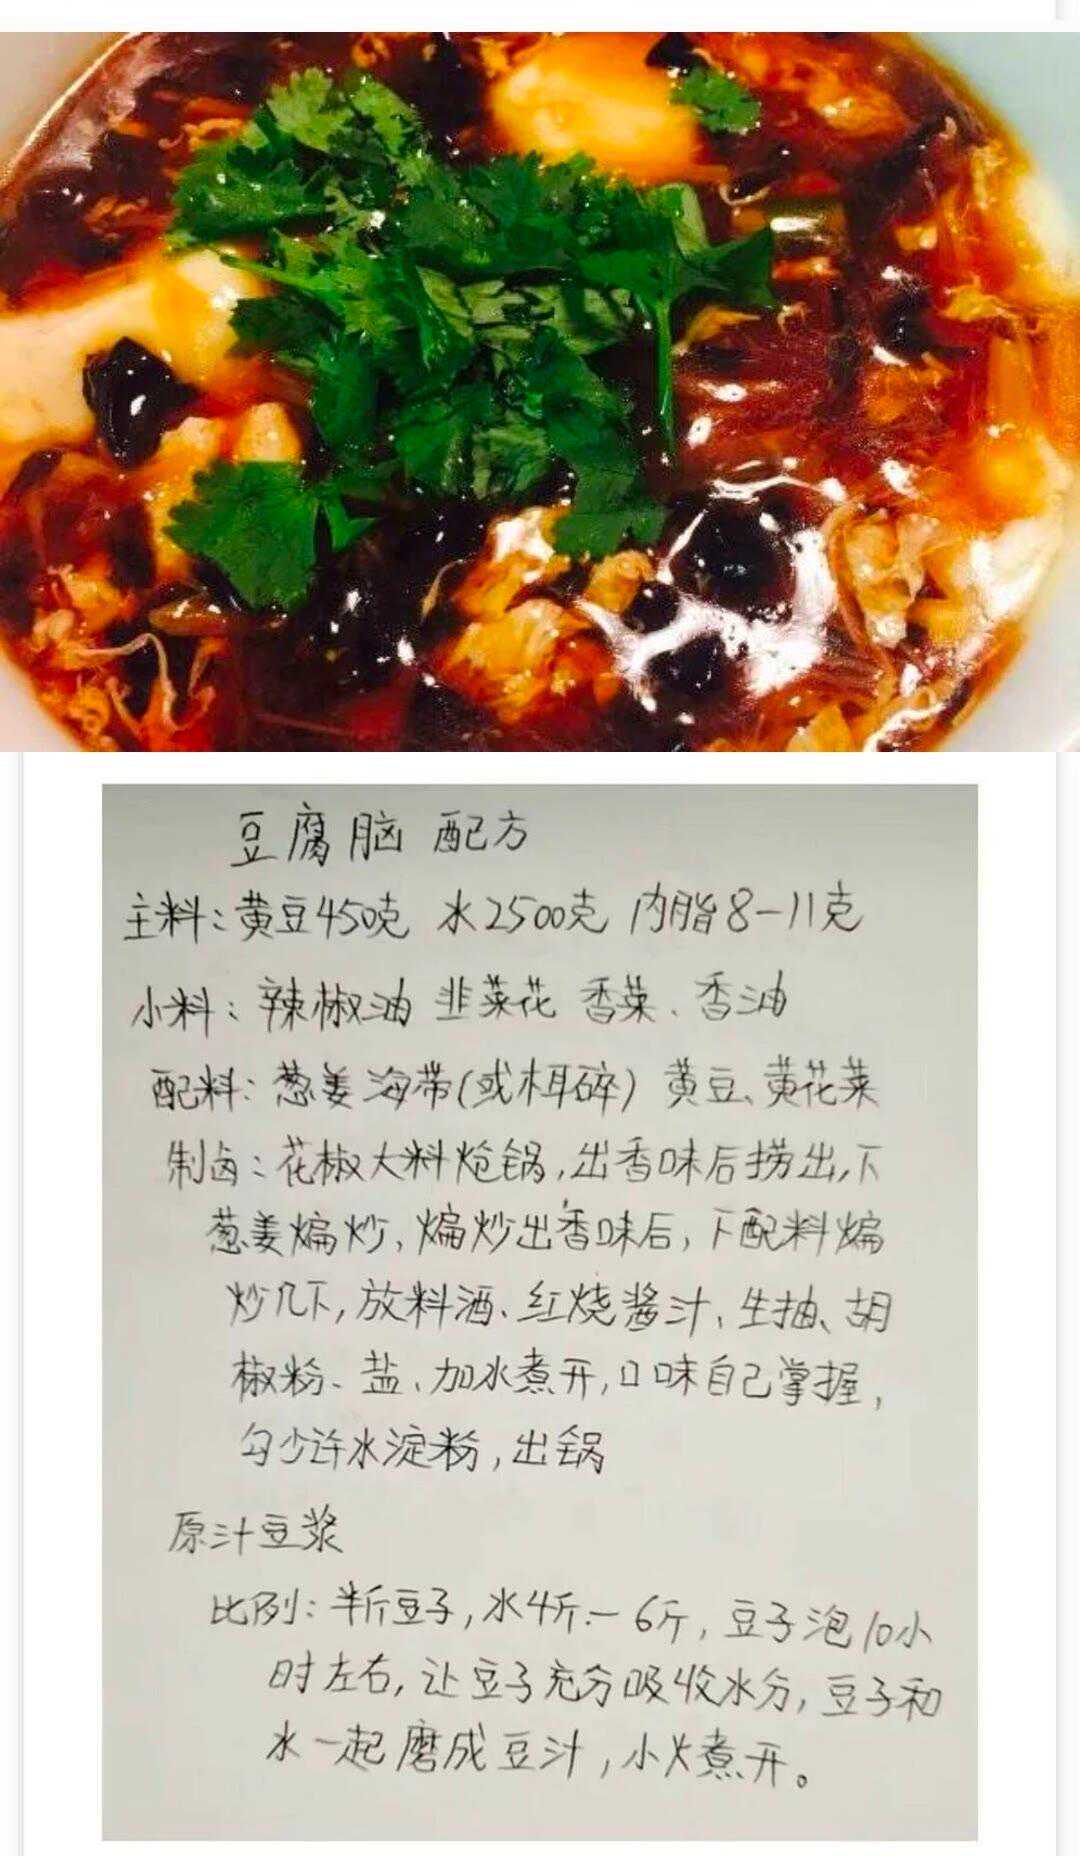 豆腐脑 配方
主料:黄豆450克 水2500克 内脂8-11克
小料:辣椒油 韭菜花 香菜、香油
配料:葱姜海带(或木耳碎) 黄豆、黄花菜
制卤:花椒大料炝锅,出香味后捞出,下
葱姜煸炒,煸炒出香味后,下配料煸
炒几下,放料酒、红烧酱汁、生抽、胡
椒粉、盐、加水煮开,口味自己掌握,
勾少许水淀粉,出锅
原汁豆浆
比例:半斤豆子,水4斤-6斤,豆子泡10小
时左右,让豆子充分吸收水分,豆子和
水一起磨成豆汁,小火煮开。